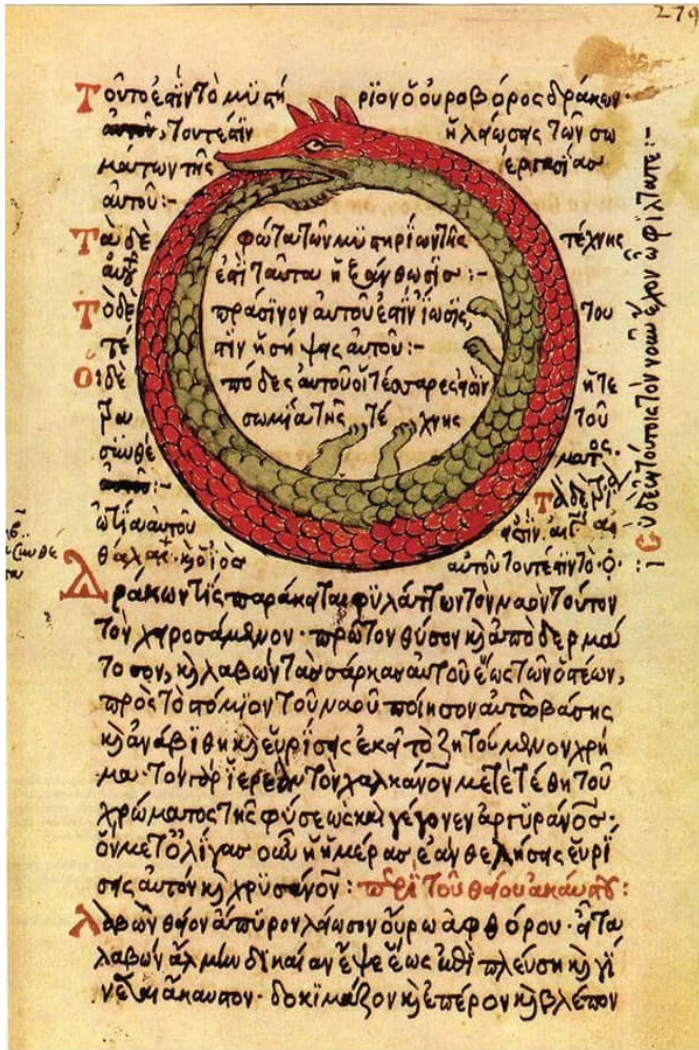 279
Τοῦτο ἐστὶν τὸ μυστήριον ὁ οὐροβόρος δράκων·
τουτέστιν ἡ λαίωσης τῶν σω
μάτων τῆς ἐργασίας
αὐτοῦ:-
Τὰ δὲ φῶτα τῶν μυστηρίων τῆς τέχνης
ἐστὶ ταῦτα ἡ ξάνθωσις:-
Τὸ δὲ πράσινον αὐτοῦ ἐστὶν ἴωσις, του
τέστιν ἡ σήψης αὐτοῦ:-
Οἱ δὲ πόδες αὐτοῦ οἱ τέσσαρες ἐστὶν ἡ τε
τρασωμία τῆς τέχνης τοῦ
συνθέματος
Τὰ δὲ τρία
ὠτία αὐτοῦ
αὐτοῦ τουτέστιν τὸ
Δράκων τὶς παράκειται φυλάττων τὸν ναὸν τοῦτον
τὸν χειροσάμενον· πρῶτον θύσον καὶ ἀποδερμά
τοσον, καὶ λαβὼν τὰς σάρκας αὐτοῦ ἕως τῶν ὀστέων,
πρὸς τὸ στόμιον τοῦ ναοῦ ποίησον αὐτῶ βάσης
καὶ ἀνάβιθη καὶ εὑρίσης ἐκεῖ τὸ ζητούμενον χρή
μα· τὸν γὰρ ἱερέαν τὸν χαλκάνον μετετέθη τοῦ
χρώματος τῆς φύσεως καὶ γέγονεν ἀργυράνος·
ὃν μετ ὀλίγας οὖν ἡμέρας ἐὰν θελήσης εὑρί
σης αὐτὸν καὶ χρυσάνον: περὶ τοῦ θείου ἀκαύστου:
Λαβὼν θεῖον ἄπυρον λαίωσον οὔρω ἀφθόρου· εἶτα
λαβὼν ἅλμην δικαίαν ἕψε ἕως ἐπιπλεύση καὶ γί
νεται ἄκαυστον· δοκίμαζον καὶ ἔπερον καὶ βλέπον